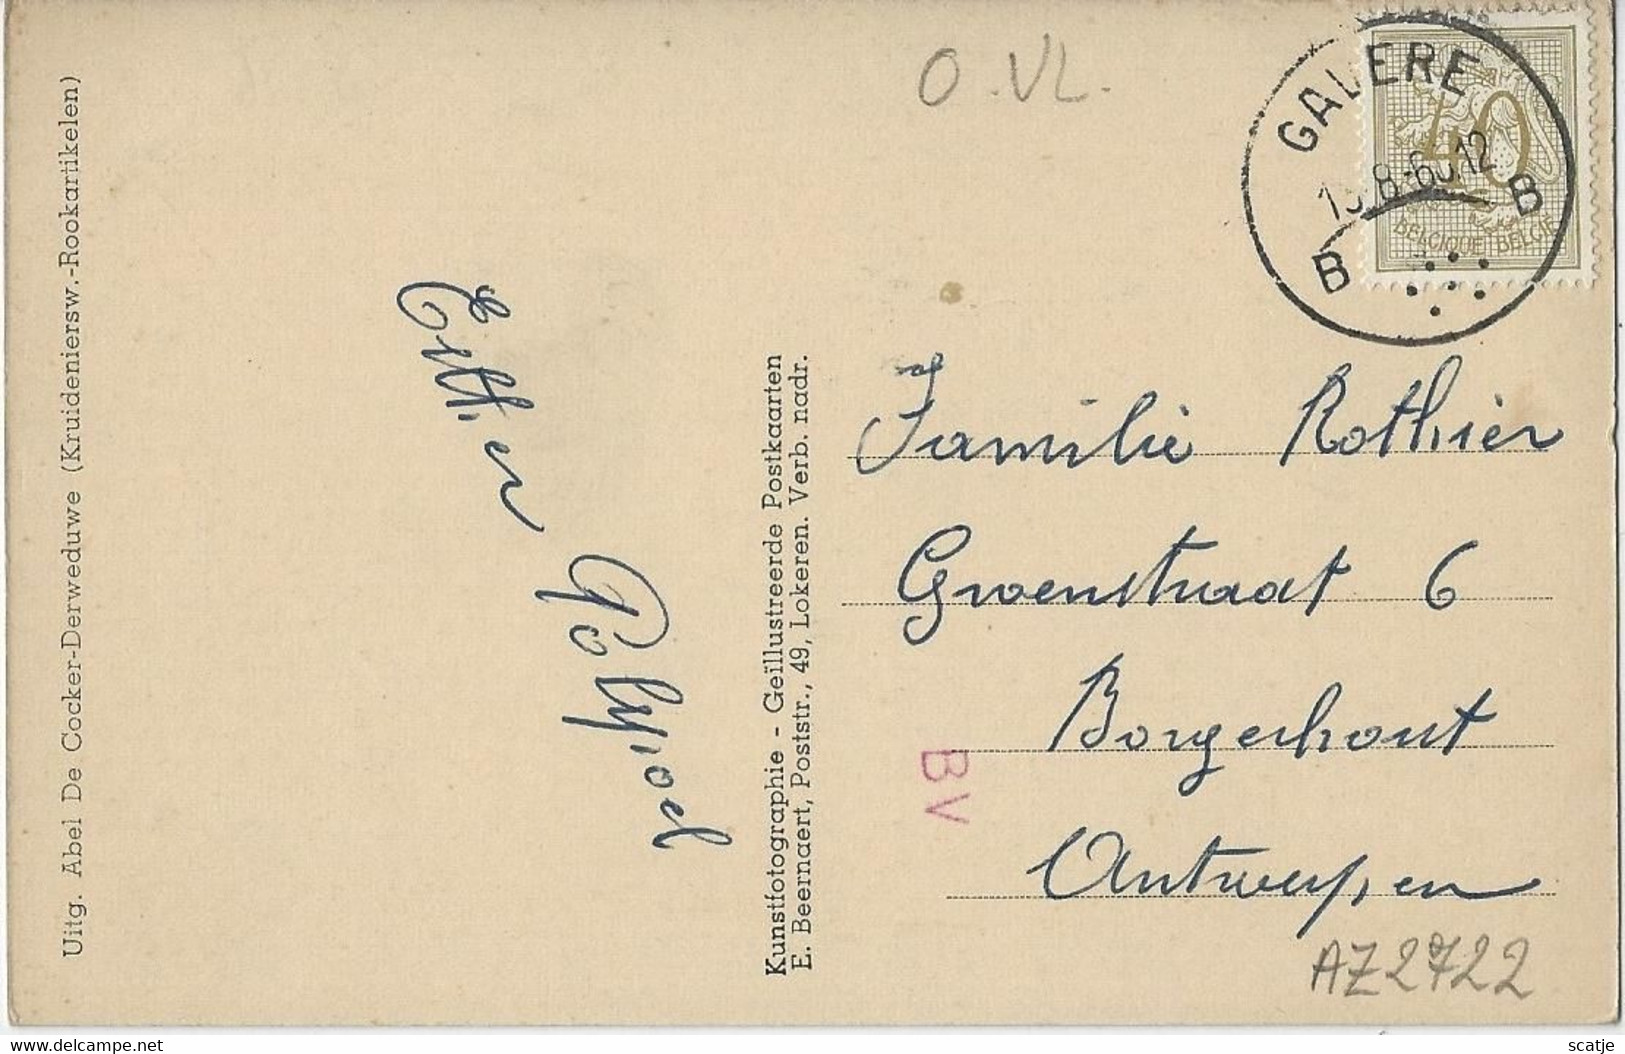 Uitg. Abel De Cocker-Derweduwe (Kruideniersw.-Rookartikelen)
Kunstfotographie - Geïllustreerde Postkaarten
E. Beernaert, Poststr., 49, Lokeren. Verb. nadr.
O.VL.
GAVERE
B B
40
BELGIQUE BELGIE
Familie Rothier
Groenstraat 6
Borgerhout
Antwerpen
BV
AZ2722
delcampe.net
scatje